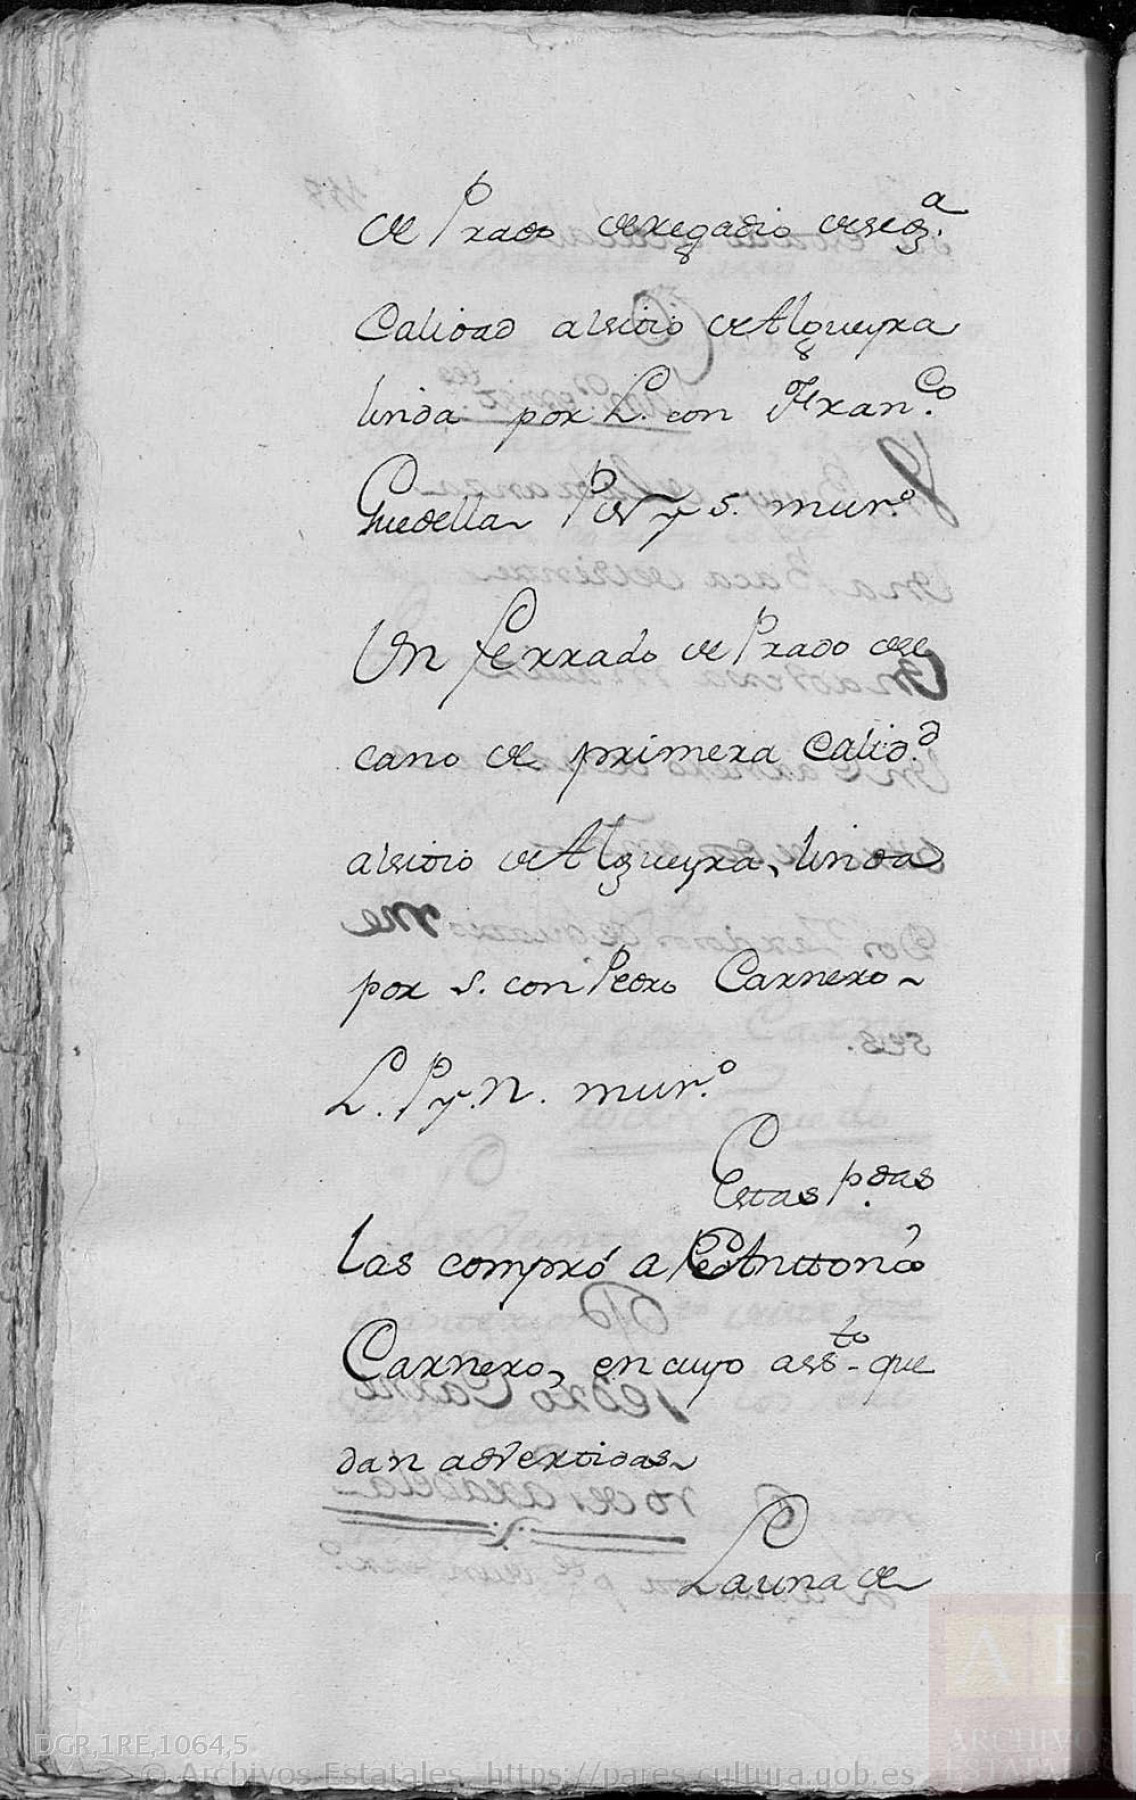 de Prado de regadio de seg.ᵃ
Calidad al sitio de Algueyra
linda por L. con Fran.ᶜᵒ
Guedella P. N y S. mur.ᵒ
Un ferrado de Prado de se
cano de primera Calid.ᵈ
al sitio de Algueyra, linda
por S. con Pedro Carnero
L. P y. N. mur.ᵒ
Estas p.ᵈᵃˢ
las compró a Anttonio
Carnero, en cuyo ass.ᵗᵒ que
dan advertidas
La una de
DGR,1RE,1064,5
© Archivos Estatales https://pares.cultura.gob.es
AE
ARCHIVOS
ESTATALES